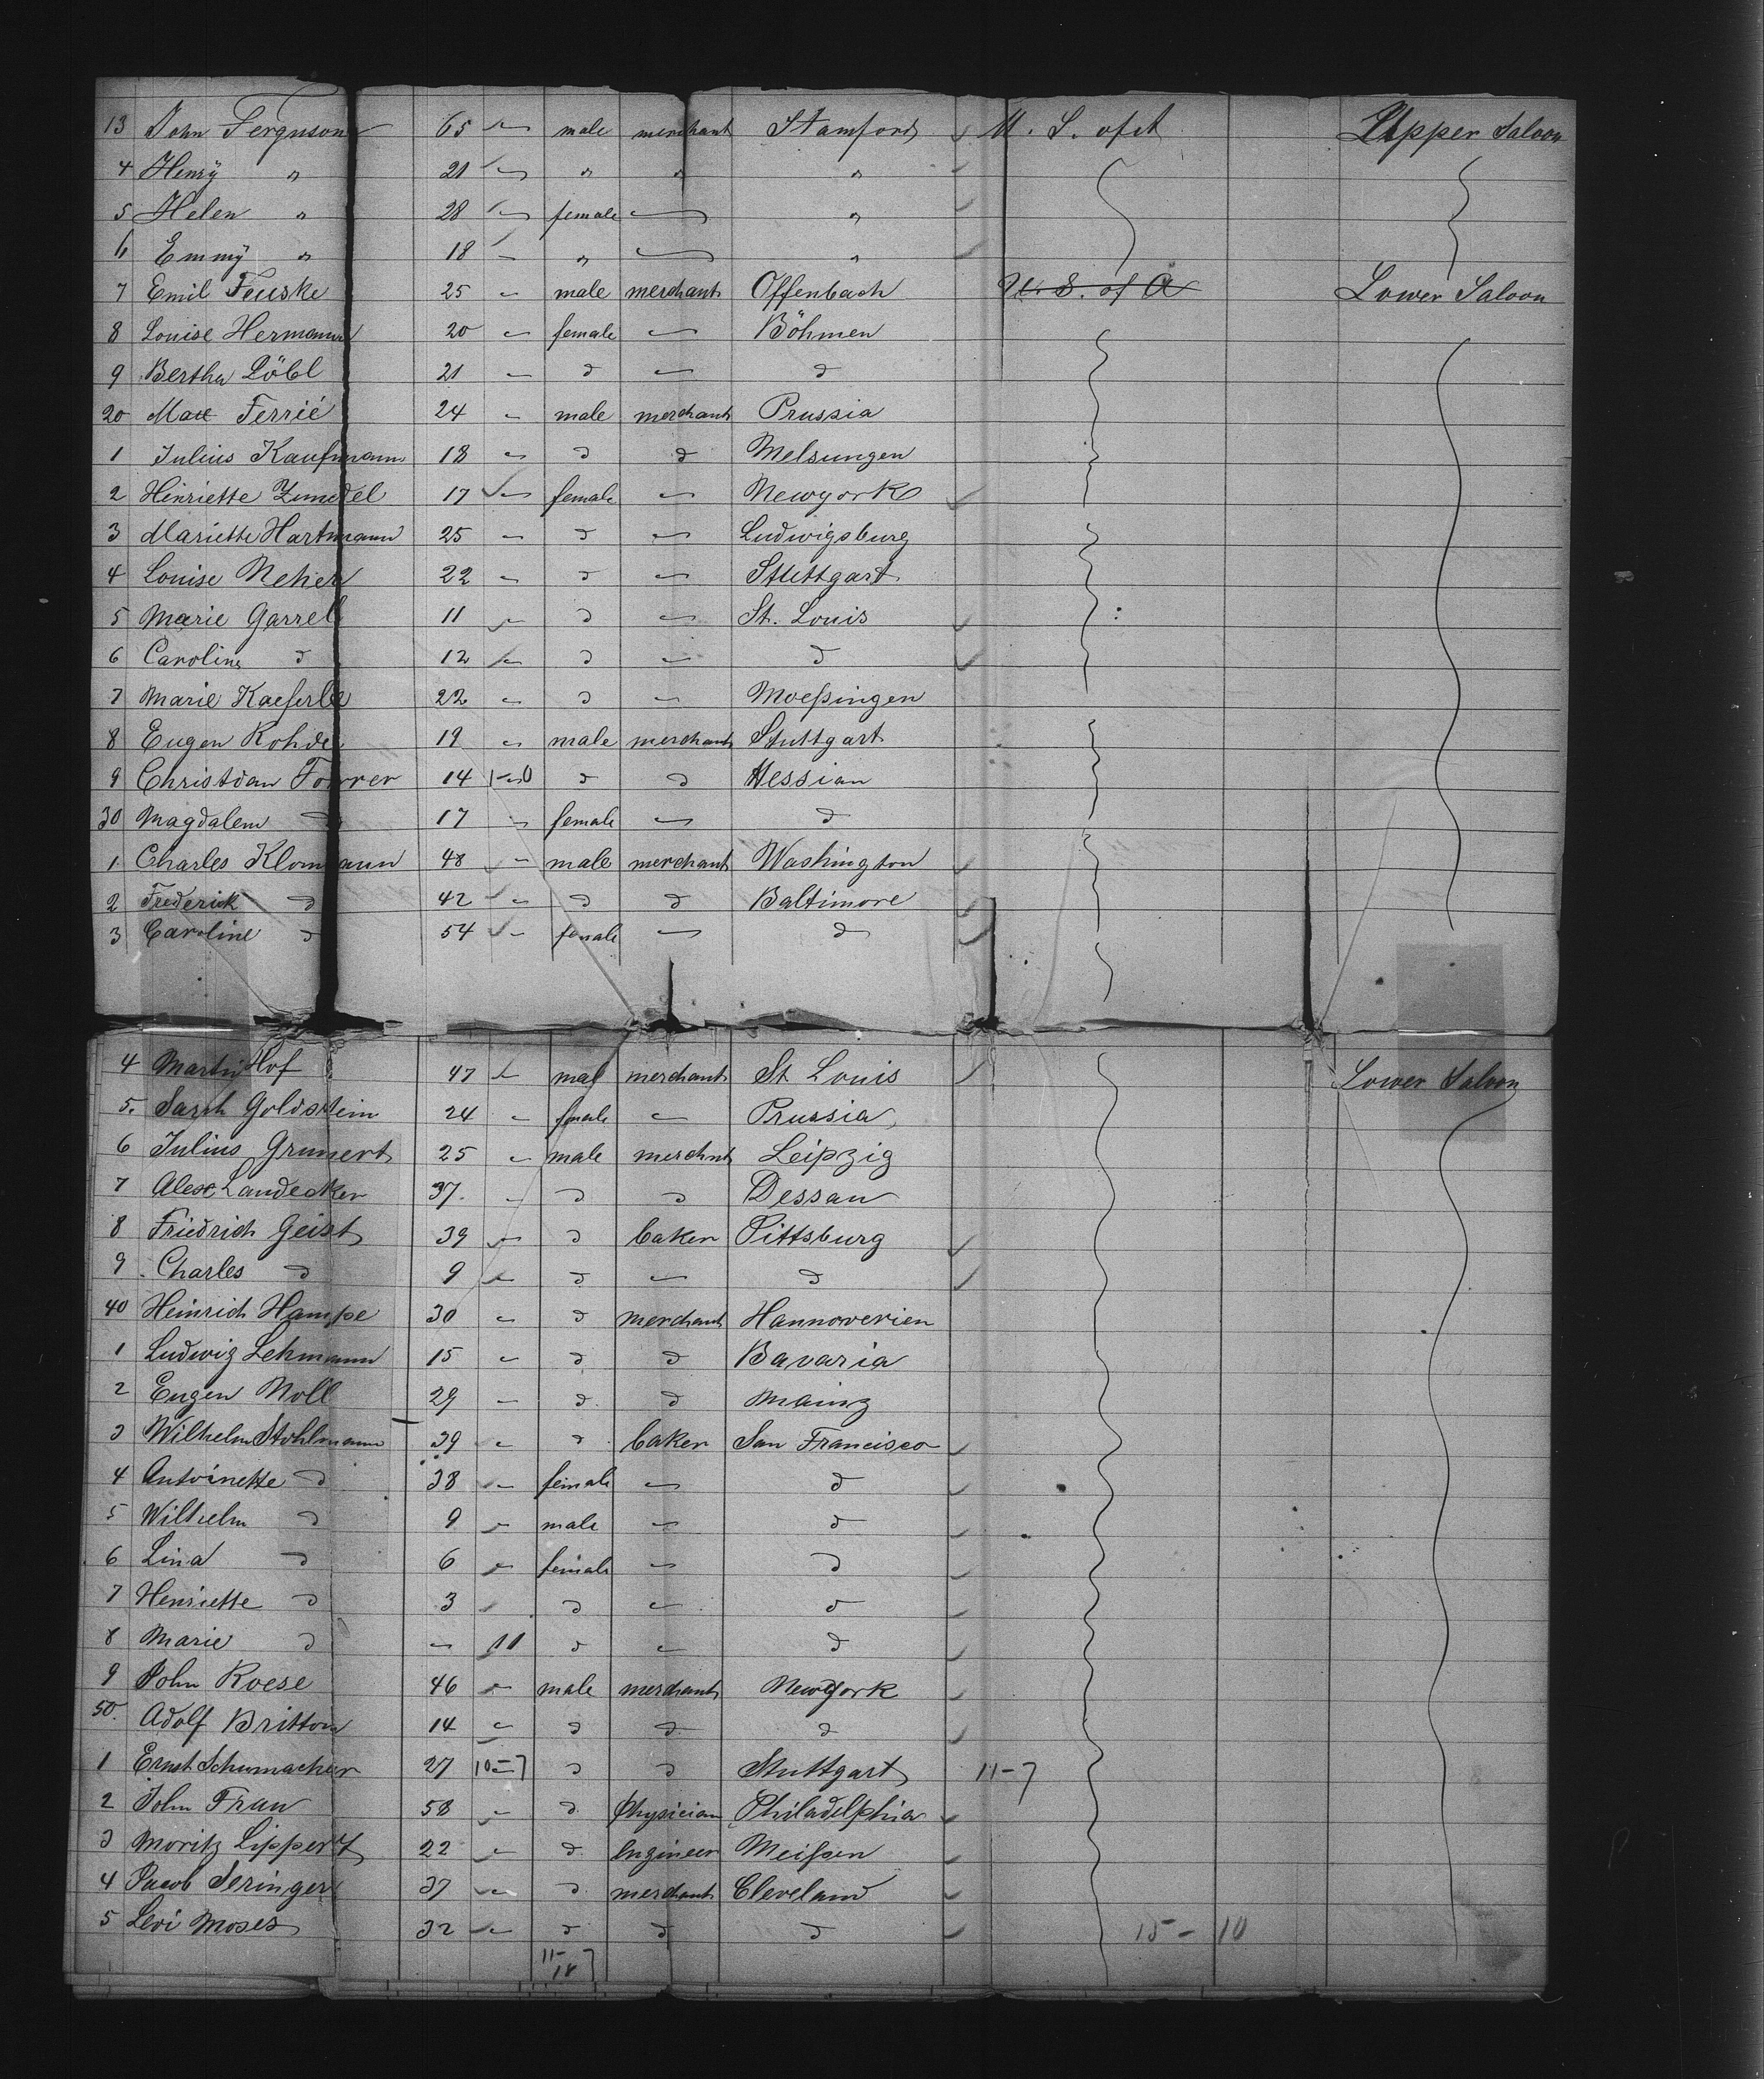 13 John Ferguson 65 – male merchant Stamford U. S. of A Upper Saloon
4 Henry " 21 – " " "
5 Helen " 28 – female – "
6 Emmy " 18 – " – "
7 Emil Feuske 25 – male merchant Offenbach U. S. of A Lower Saloon
8 Louise Hermann 20 – female – Böhmen
9 Bertha Löbl 21 – d – d
20 Max Ferrié 24 – male merchant Prussia
1 Julius Kaufmann 18 – d d Melsungen
2 Hinriette 17 – female – Newyork
3 Mariette Hartmann 25 – d – Ludwigsburg
4 Louise Neher 22 – d – Stuttgart
5 Marie Garrel 11 – d – St. Louis
6 Caroline d 12 – d – d
7 Marie Kaeferle 22 – d – Moeßingen
8 Eugen Rohde 19 – male merchant Stuttgart
9 Christian Forrer 14 – d d Hessian
30 Magdalem d 17 – female – d
1 Charles Klomann 48 – male merchant Washington
2 Frederick d 42 – d d Baltimore
3 Caroline d 54 – female – d
4 Martin Hof 47 – mal merchant St Louis Lower Saloon
5. Sarah Goldstein 24 – female – Prussia
6 Julius Grunert 25 – male merchnt Leipzig
7 Alex Landecker 37. – d d Dessau
8 Friedrich Geist 39 – d baker Pittsburg
9 Charles d 9 – d – d
40 Heinrich Hampe 30 – d merchant Hannoverien
1 Ludwig Lehmann 15 – d d Bavaria
2 Eugen Noll 29 – d d Mainz
3 Wilhelm Stohlmann 39 – d baker San Francisco
4 Antoinette d 38 – female – d
5 Wilhelm d 9 – male – d
6 Lina d 6 – female – d
7 Henriette d 3 – d – d
8 Marie d – 11 d – d
9 John Roese 46 – male merchant Newyork
50. Adolf Britton 14 – d d d
1 Ernst Schumacher 27 10–7 d d Stuttgart 11–7
2 John Frau 58 – d physician Philadelphia
3 Moritz Lippert 22 – d Engineer Meißen
4 Jacob Seringer 37 – d merchant Cleveland
5 Levi Moses 32 – d d d 15 – 10
11–7
18